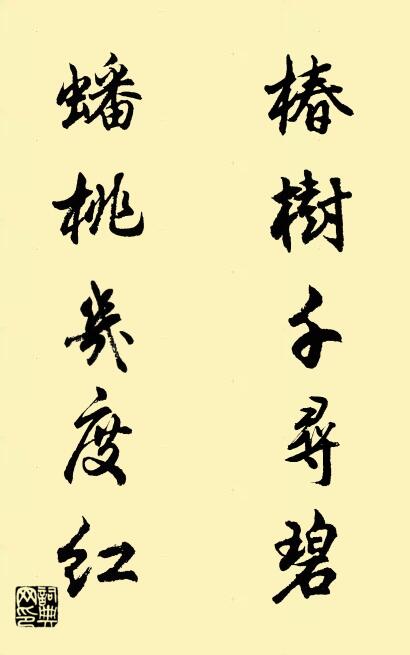 椿樹千尋碧
蟠桃幾度紅
詞典網印